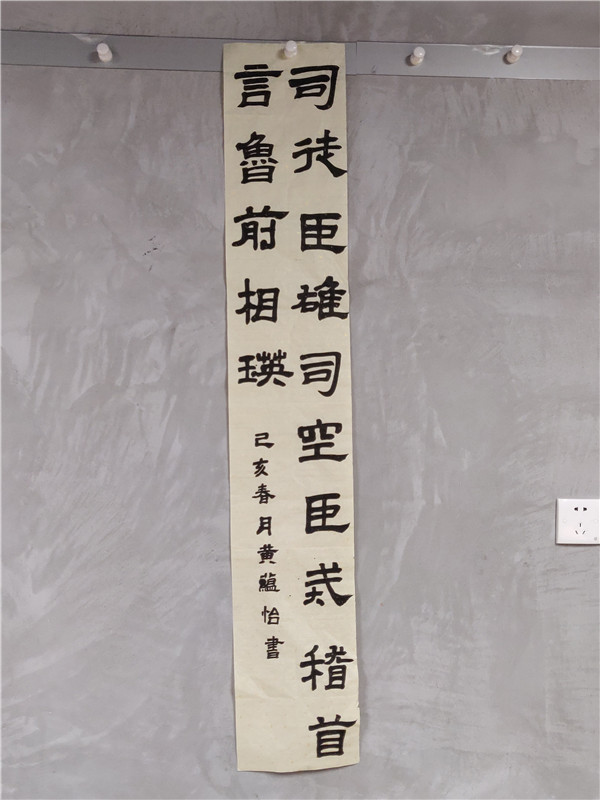 司徒臣雄司空臣戒稽首
言魯前相瑛
己亥春月黄蕴怡書